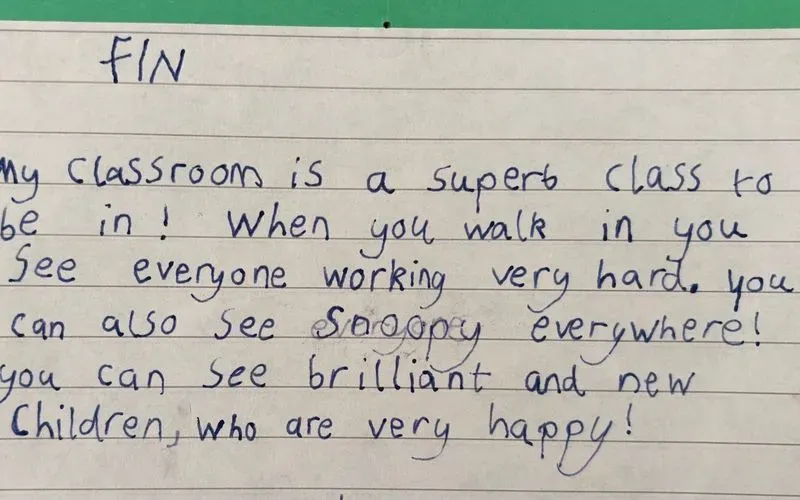 FIN
My classroom is a superb class to
be in! When you walk in you
See everyone working very hard. you
can also see Snoopy everywhere!
you can see brilliant and new
Children, who are very happy!